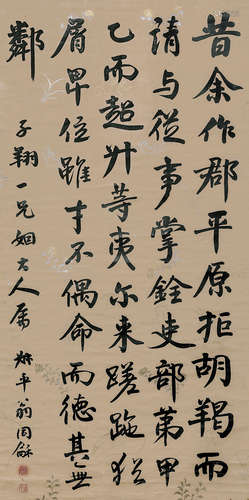 昔余作郡平原拒胡羯而
清与從事掌銓吏部第甲
乙而超升等夷尔来蹉跎猶
屑卑位雖才不偶命而德其無
鄰
子翔一兄姻大人属
叔平翁同龢